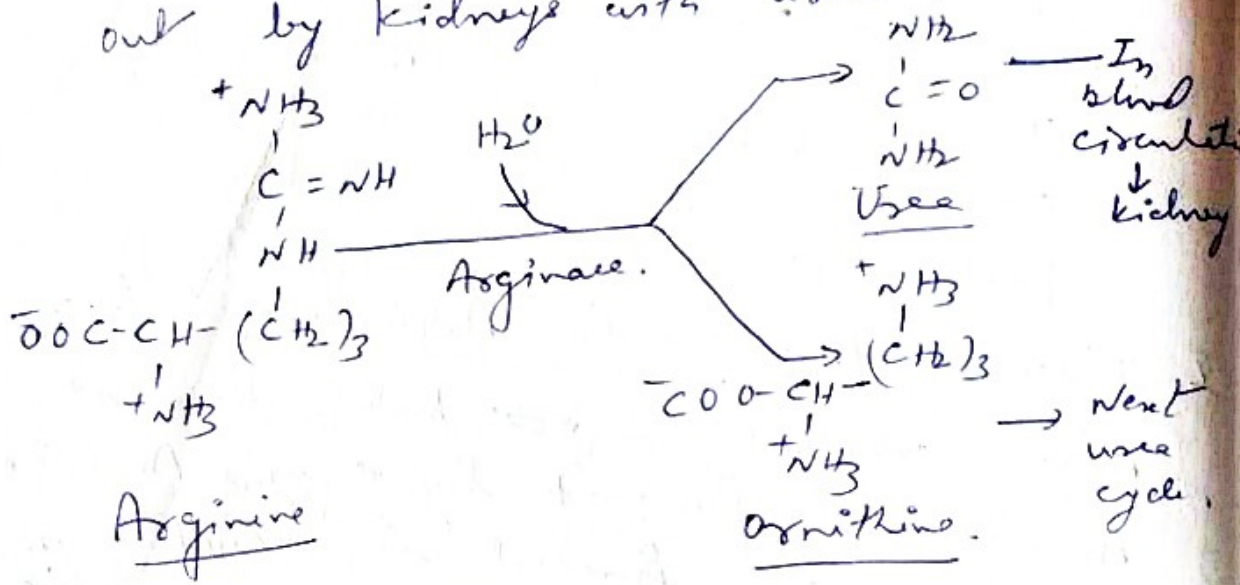 out by kidneys with
+NH3
C = NH
NH
-OOC-CH-(CH2)3
+NH3
Arginine
H2O
Arginase.
NH2
C = O
NH2
Urea
In
blood
circulati
↓
kidney
+NH3
(CH2)3
-COO-CH-
+NH3
Ornithine.
→ Next
urea
cycle.